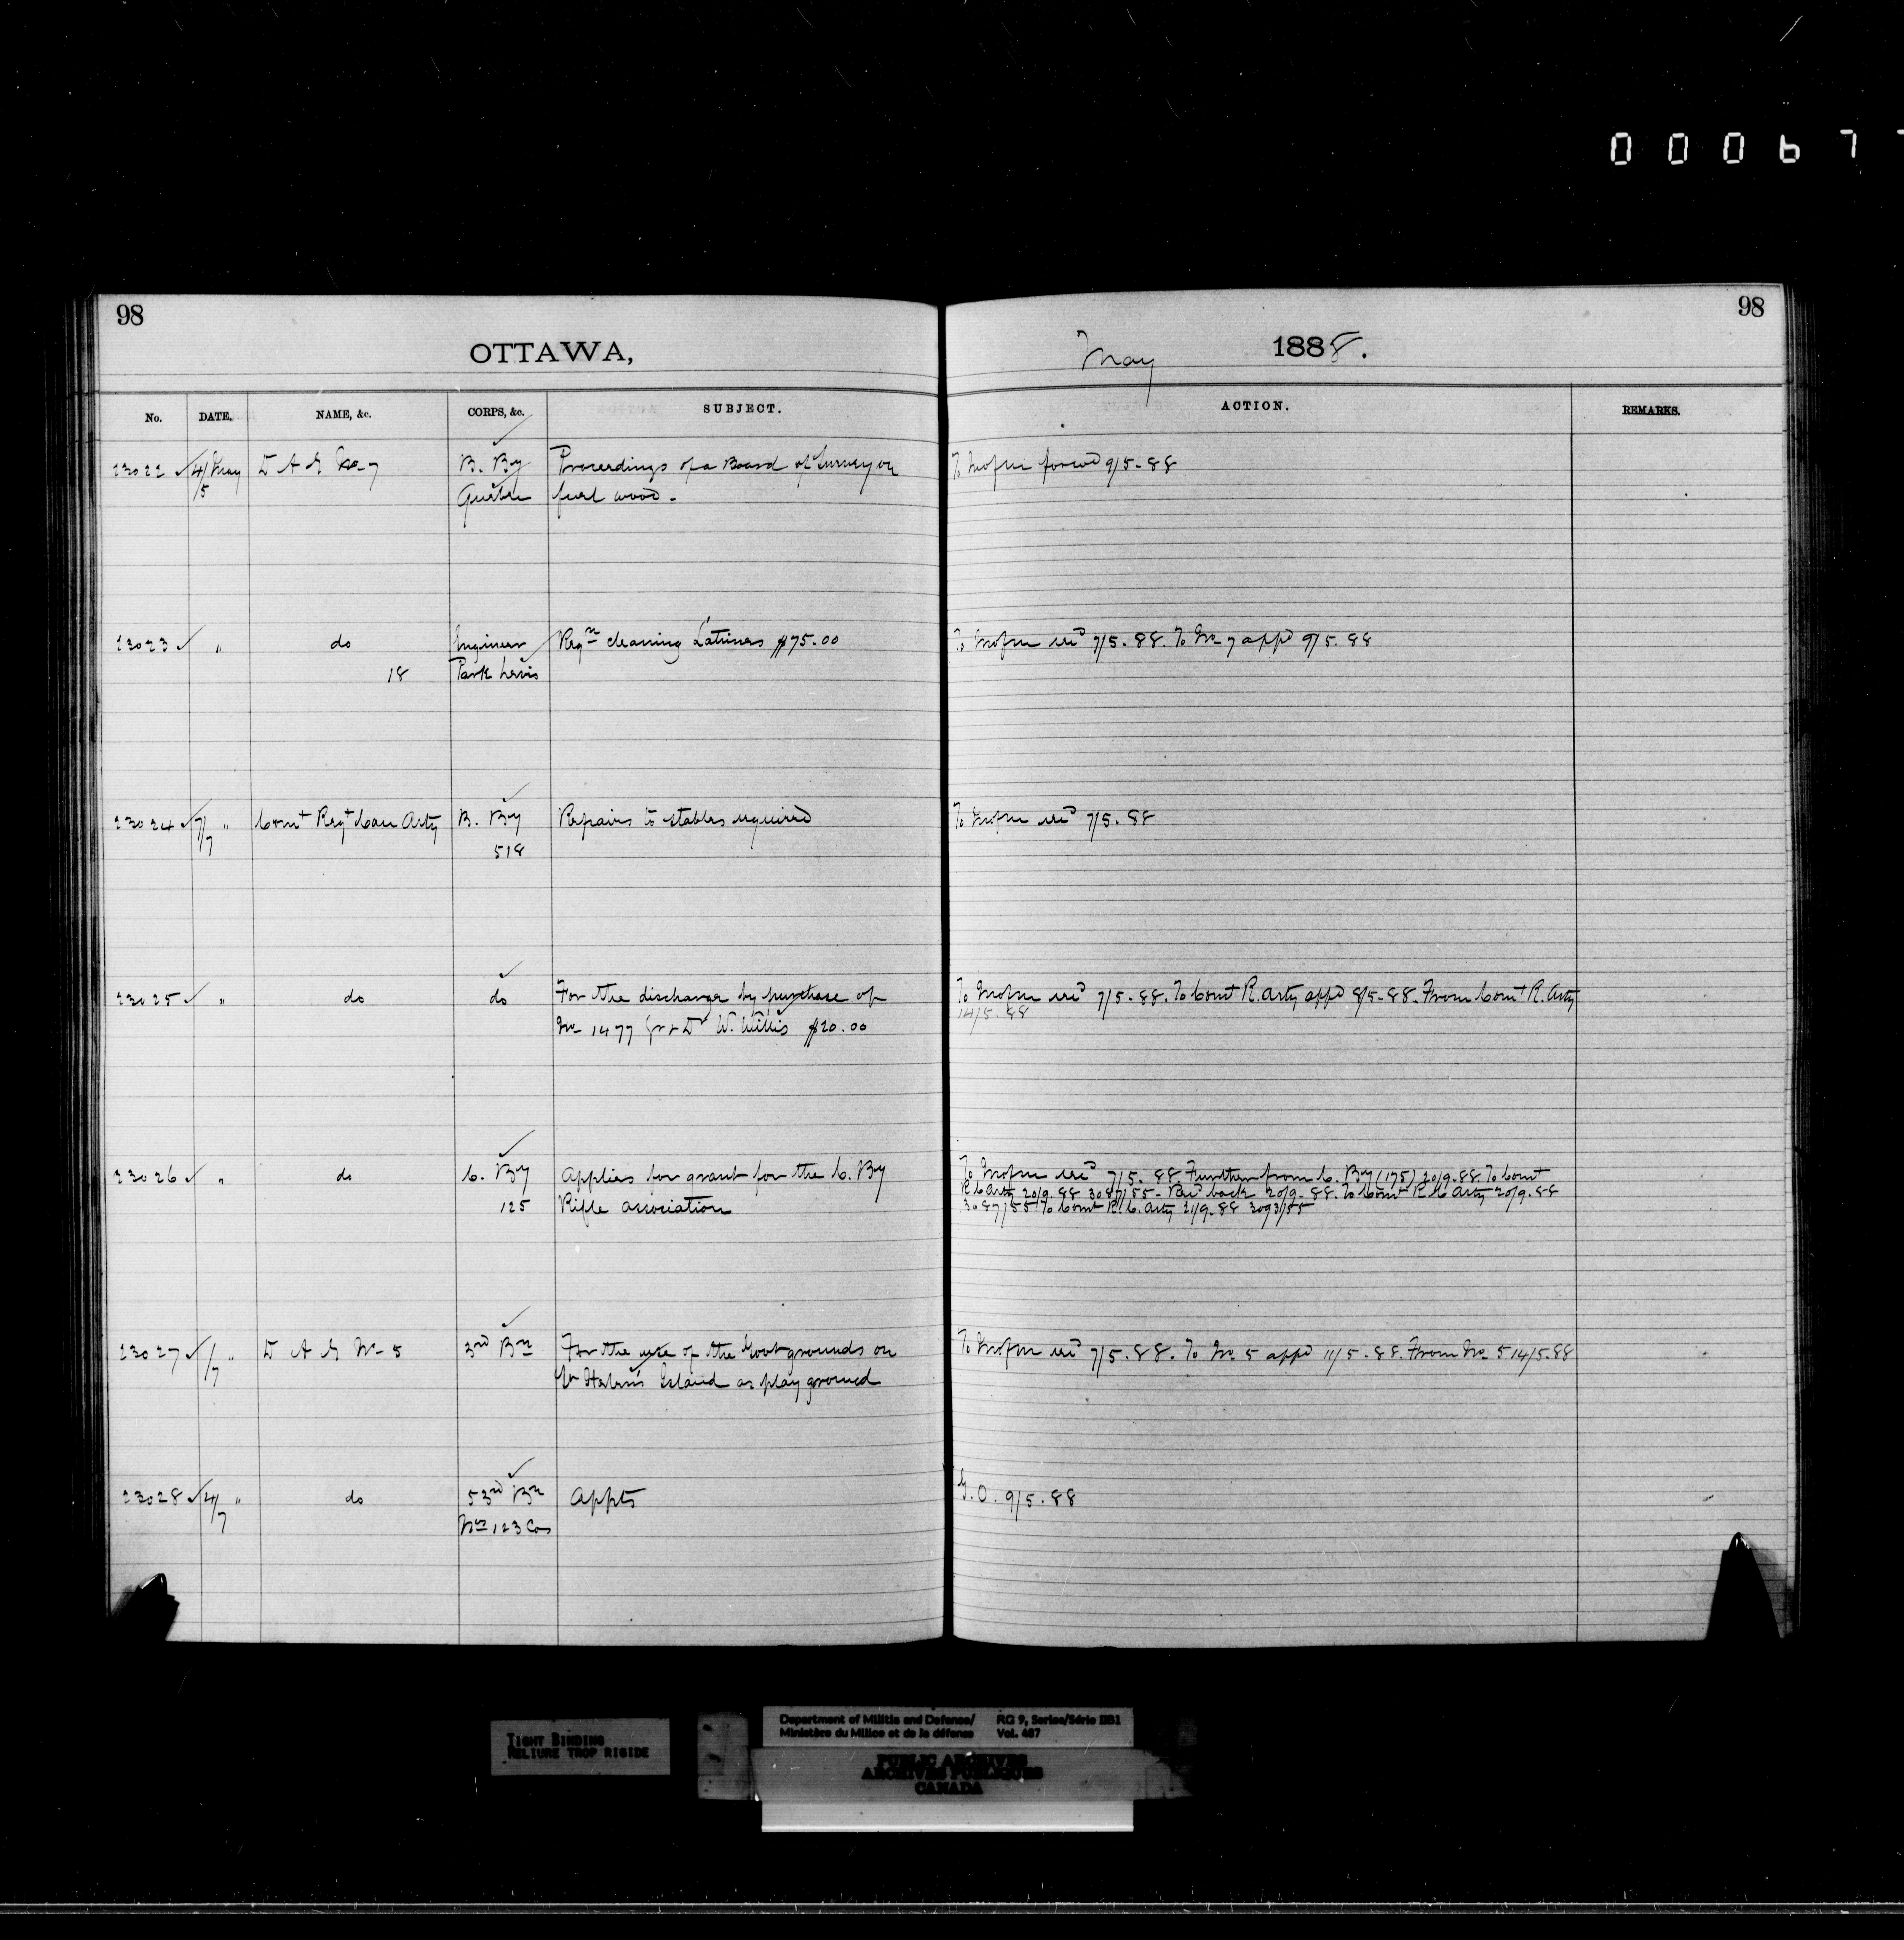 00067
98
OTTAWA,
May 1888.
98
No. DATE. NAME, &c. CORPS, &c. SUBJECT. ACTION. REMARKS.
23022 4/5 May D A G No 7 B. By Proceedings of a Board of Survey on
Quebec fuel wood.
forwd 9/5-88
23023 " do Engineer Reqn cleaning Latrines $75.00
18 Park Levis
7/5.88. To No 7 appd 9/5.88
23024 7/7 " Comt Regt Can Arty B. By Repairs to stables required
518
7/5.88
23025 " do do For the discharge by purchase of
No 1477 Gr & Dr W. Willis $20.00
7/5-88. To Comt R. Arty appd 8/5-88. From Comt R. Arty
14/5.88
23026 " do C. By Applies for grant for the C. By
125 Rifle association
7/5.88. Further from C. By (175) 20/9.88. To Comt
R C Arty 20/9.88 3087/55- Recd back 20/9-88. To Comt R C Arty 20/9.88
3087/55 To Comt R. C. Arty 21/9.88 3093/55
23027 /7 " D A G No 5 3rd Bn For the use of the Govt grounds on
Island as play ground
7/5.88. To No 5 appd 11/5.88. From No 5 14/5.88
23028 4/7 " do 53rd Bn Appts
Nos 123 Cos
G.O. 9/5.88
TIGHT BINDING
RELIURE TROP RIGIDE
Department of Militia and Defence/ RG 9, Series/Série IIB1
Ministère du Milice et de la défense Vol. 487
PUBLIC ARCHIVES
ARCHIVES PUBLIQUES
CANADA